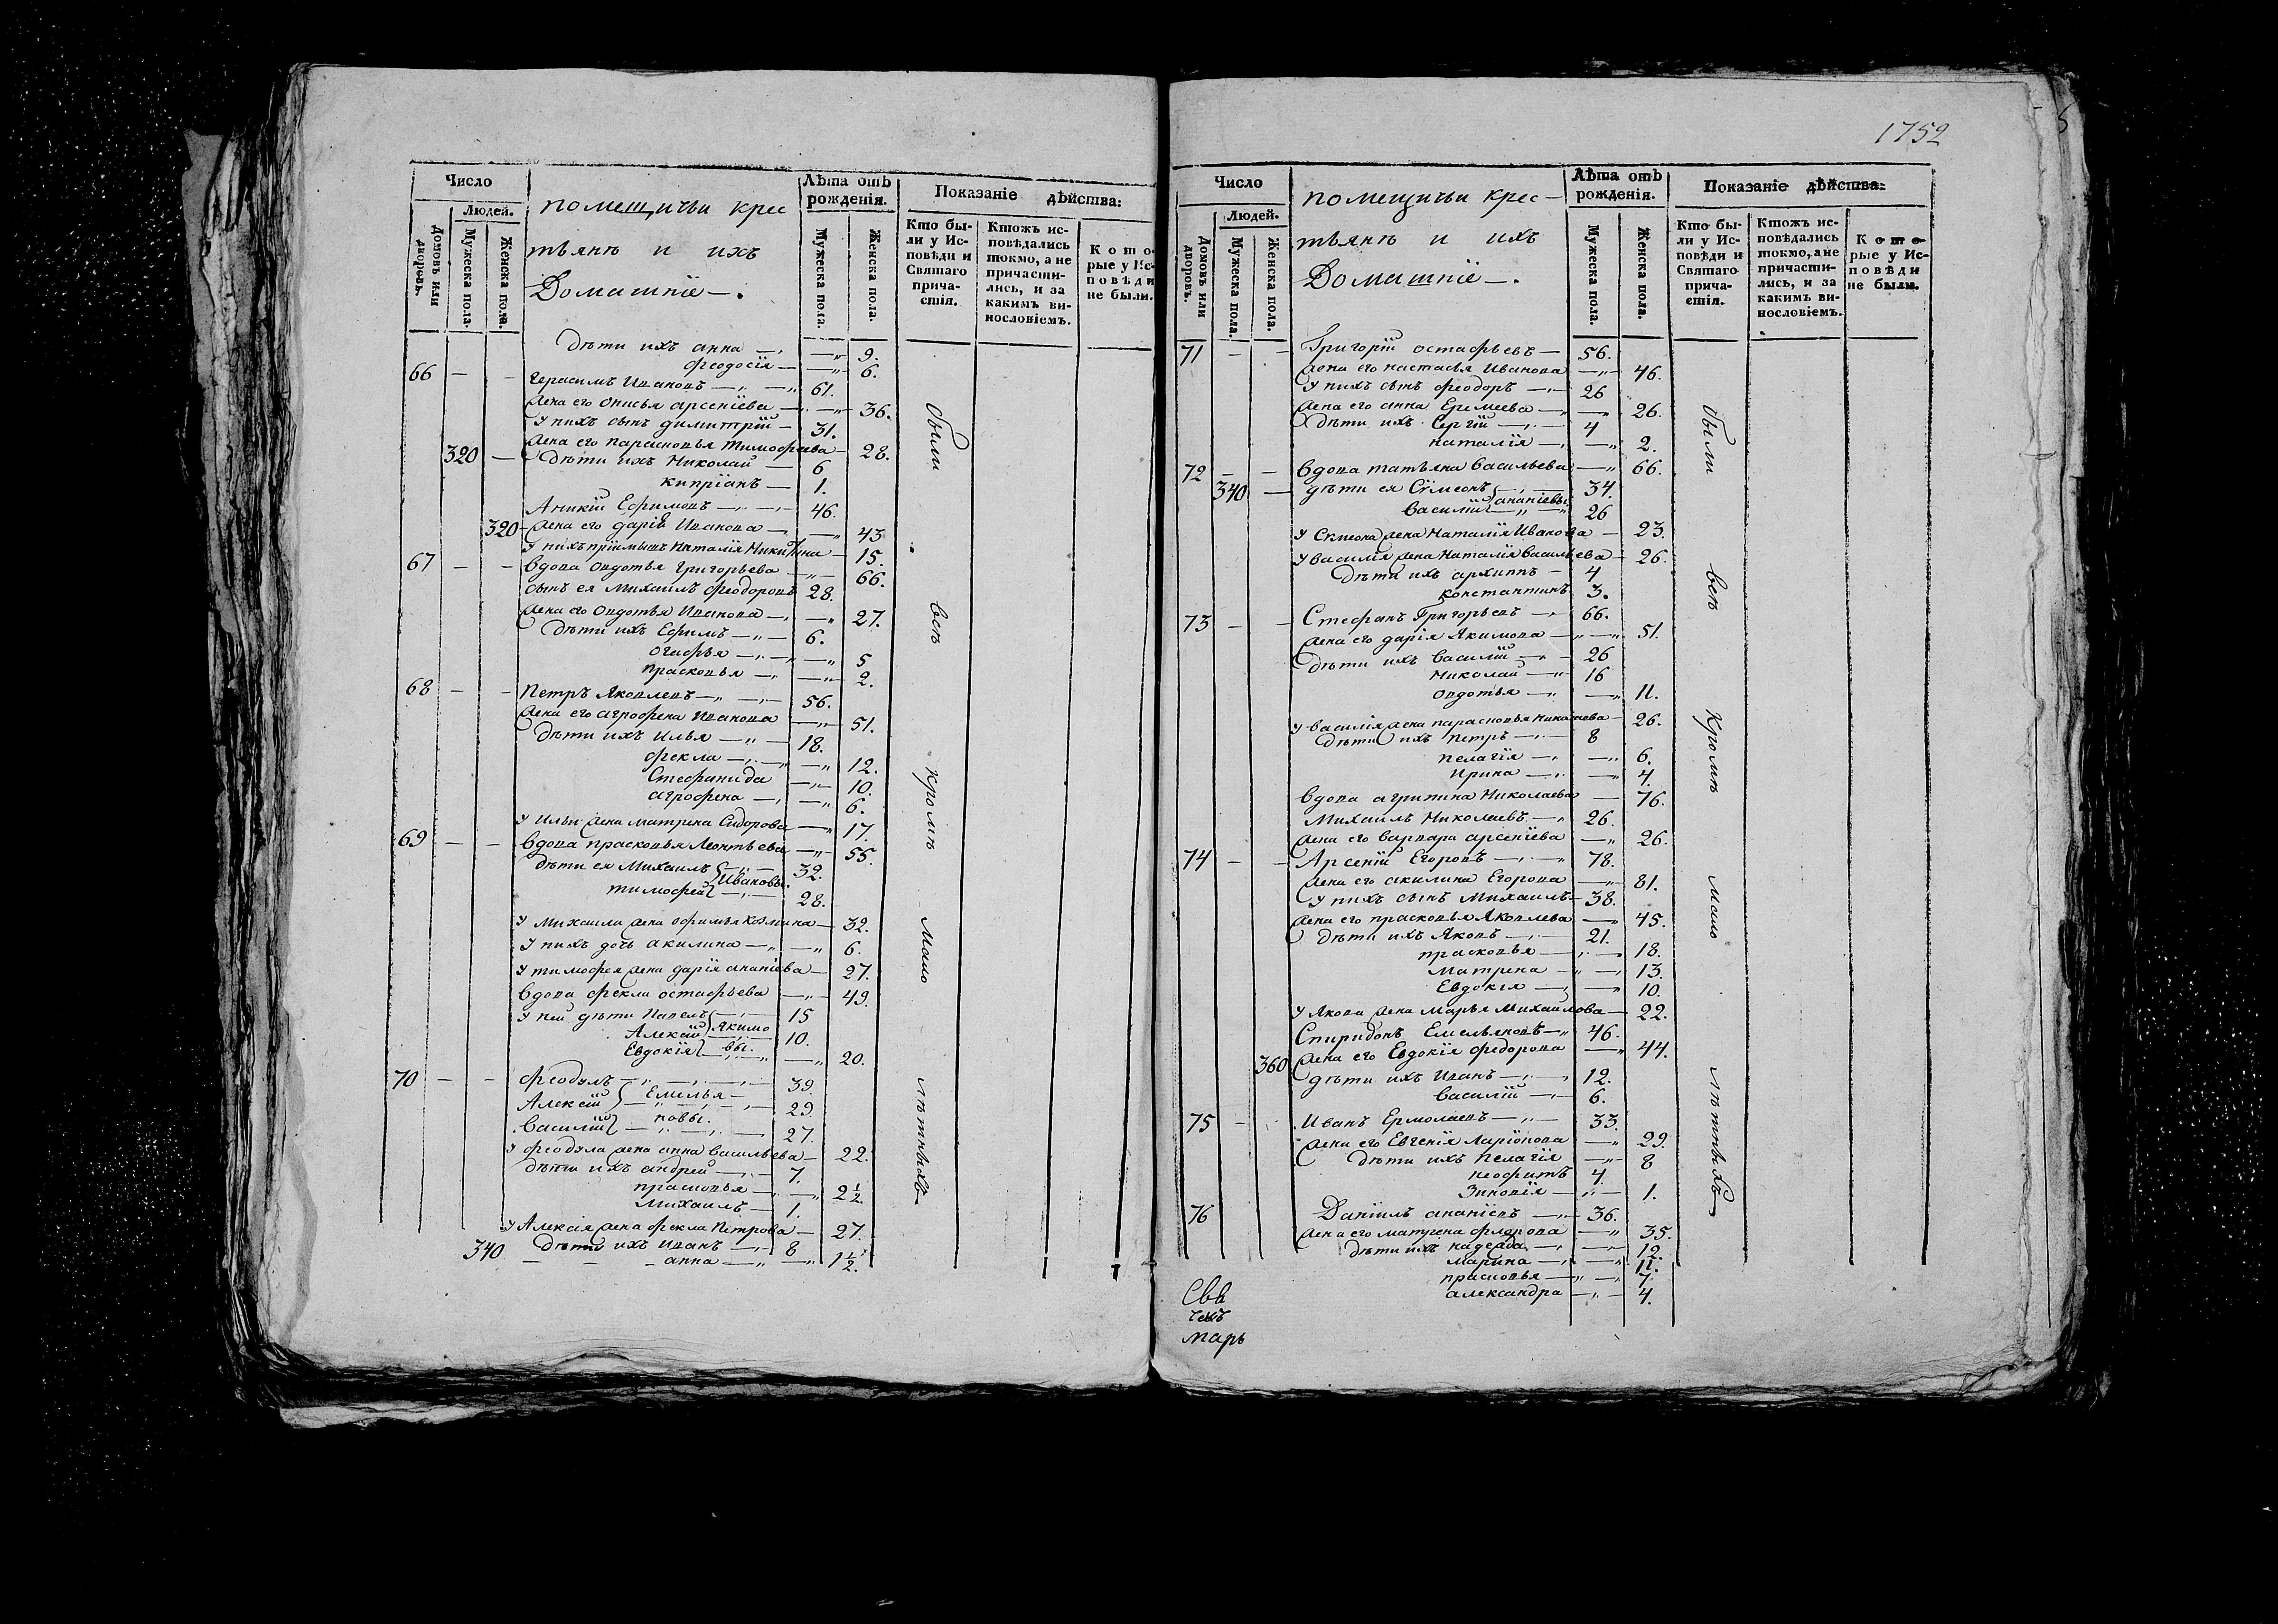 Число
Людей.
Домовъ или дворовъ.
Мужеска пола.
Женска пола.
помещичьи крес
тьянѣ и ихъ
Домашніе —.
Лѣта отъ рожденія.
Мужеска пола.
Женска пола.
Показаніе дѣйства:
Кто бы-
ли у Ис-
повѣди и
Святаго
прича-
стія.
Ктожъ ис-
повѣдались
токмо, а не
причасти-
лись, и за
какимъ ви-
нословіемъ.
Кото-
рые у Ис-
повѣди
не были.
дѣти ихъ анна — 9.
феодосія — 6.
66 — — Герасимъ Ивановъ — 61.
жена его Онисья арсеніева — 36.
У нихъ сынъ димитрій — 31.
жена его парасковья тимофеева — 28.
320 — дѣти ихъ Николай — 6
кипріанъ — 1.
Аникій Ефимовъ — 46.
320 — жена его дарія Иванова — 43
У нихъ пріймышъ Наталія Никитина — 15.
67 — — вдова овдотья григорьева — 66.
сынъ ея Михаилъ феодоровъ 28.
жена его Овдотья Иванова — 27.
дѣти ихъ Ефимъ — 6.
огафья — 5
прасковья — 2.
68 — — Петръ Яковлевъ — 56.
жена его агрофена Иванова — 51.
дѣти ихъ Илья — 18.
фекла — 12.
Стефанида — 10.
агрофена — 6.
У Ильи жена матрена Сидорова — 17.
69 — — вдова прасковья Леонтьева — 55.
дѣти ея Михаилъ — 32.
Ивановы.
тимофей — 28.
У Михаила жена офимья Козмина — 32.
У нихъ дочь акилина — 6.
У тимофея жена дарія ананіева — 27.
вдова фекла остафьева — 49.
У ней дѣти Павелъ — 15
Алексій Якимо — 10.
Евдокія вы. — 20.
70 — — феодулъ — 39.
Алексій Емелья — 29.
Василій новы. — 27.
У феодула жена анна васильева — 22.
дѣти ихъ андрей — 7.
прасковья — 2½
Михаилъ — 1.
У Алексія жена фекла Петрова — 27.
340 дѣти ихъ Иванъ — 8
анна — 1½.
были всѣ Кромѣ мало лѣтныхъ
1752
Число
Людей.
Домовъ или дворовъ.
Мужеска пола.
Женска пола.
помещичьи крес —
тьянѣ и ихъ
Домашніе —.
Лѣта отъ рожденія.
Мужеска пола.
Женска пола.
Показаніе дѣйства:
Кто бы-
ли у Ис-
повѣди и
Святаго
прича-
стія.
Ктожъ ис-
повѣдались
токмо, а не
причасти-
лись, и за
какимъ ви-
нословіемъ.
Кото-
рые у Ис-
повѣди
не были.
71 — — Григорій остафьевъ — 56.
жена его настасья Иванова — 46.
У нихъ сынъ феодоръ — 26
жена его анна Еремеева — 26.
дѣти ихъ Сергій — 4
наталія — 2.
72 — — вдова татьяна васильева — 66.
340 — дѣти ея Сѵмеонъ — 34.
ананіевы
василій — 26
У Симеона жена Наталія Иванова — 23.
У василія жена Наталія васильева — 26.
дѣти ихъ архиппъ — 4
константинъ 3.
73 — — Стефанъ Григорьевъ — 66.
жена его дарія Якимова — 51.
дѣти ихъ василій — 26
Николай — 16
овдотья — 11.
У василія жена парасковья Николаева — 26.
дѣти ихъ петръ — 8
пелагія — 6.
Ирина — 4.
вдова агрипина Николаева — 76.
Михаилъ Николаевъ — 26.
жена его варвара арсеніева — 26.
74 — — Арсеній Егоровъ — 78.
жена его акилина Егорова — 81.
У нихъ сынъ Михаилъ — 38.
жена его прасковья Яковлева — 45.
дѣти ихъ Яковъ — 21.
прасковья — 18.
Матрена — 13.
Евдокія — 10.
У Якова жена Марья Михаилова — 22.
Спиридонъ Емельяновъ — 46.
360 жена его Евдокія федорова — 44.
дѣти ихъ Иванъ — 12.
василій — 6.
75 — Иванъ Ермолаевъ — 33.
жена его Евгенія Ларіонова — 29.
дѣти ихъ Пелагія — 8
неофитъ 4.
Зиновія — 1.
76 Даніилъ ананіевъ — 36.
жена его матрена флорова — 35.
дѣти ихъ надежда — 12.
марина — 11.
прасковья — 7.
александра — 4.
были всѣ Кромѣ мало лѣтныхъ
марь